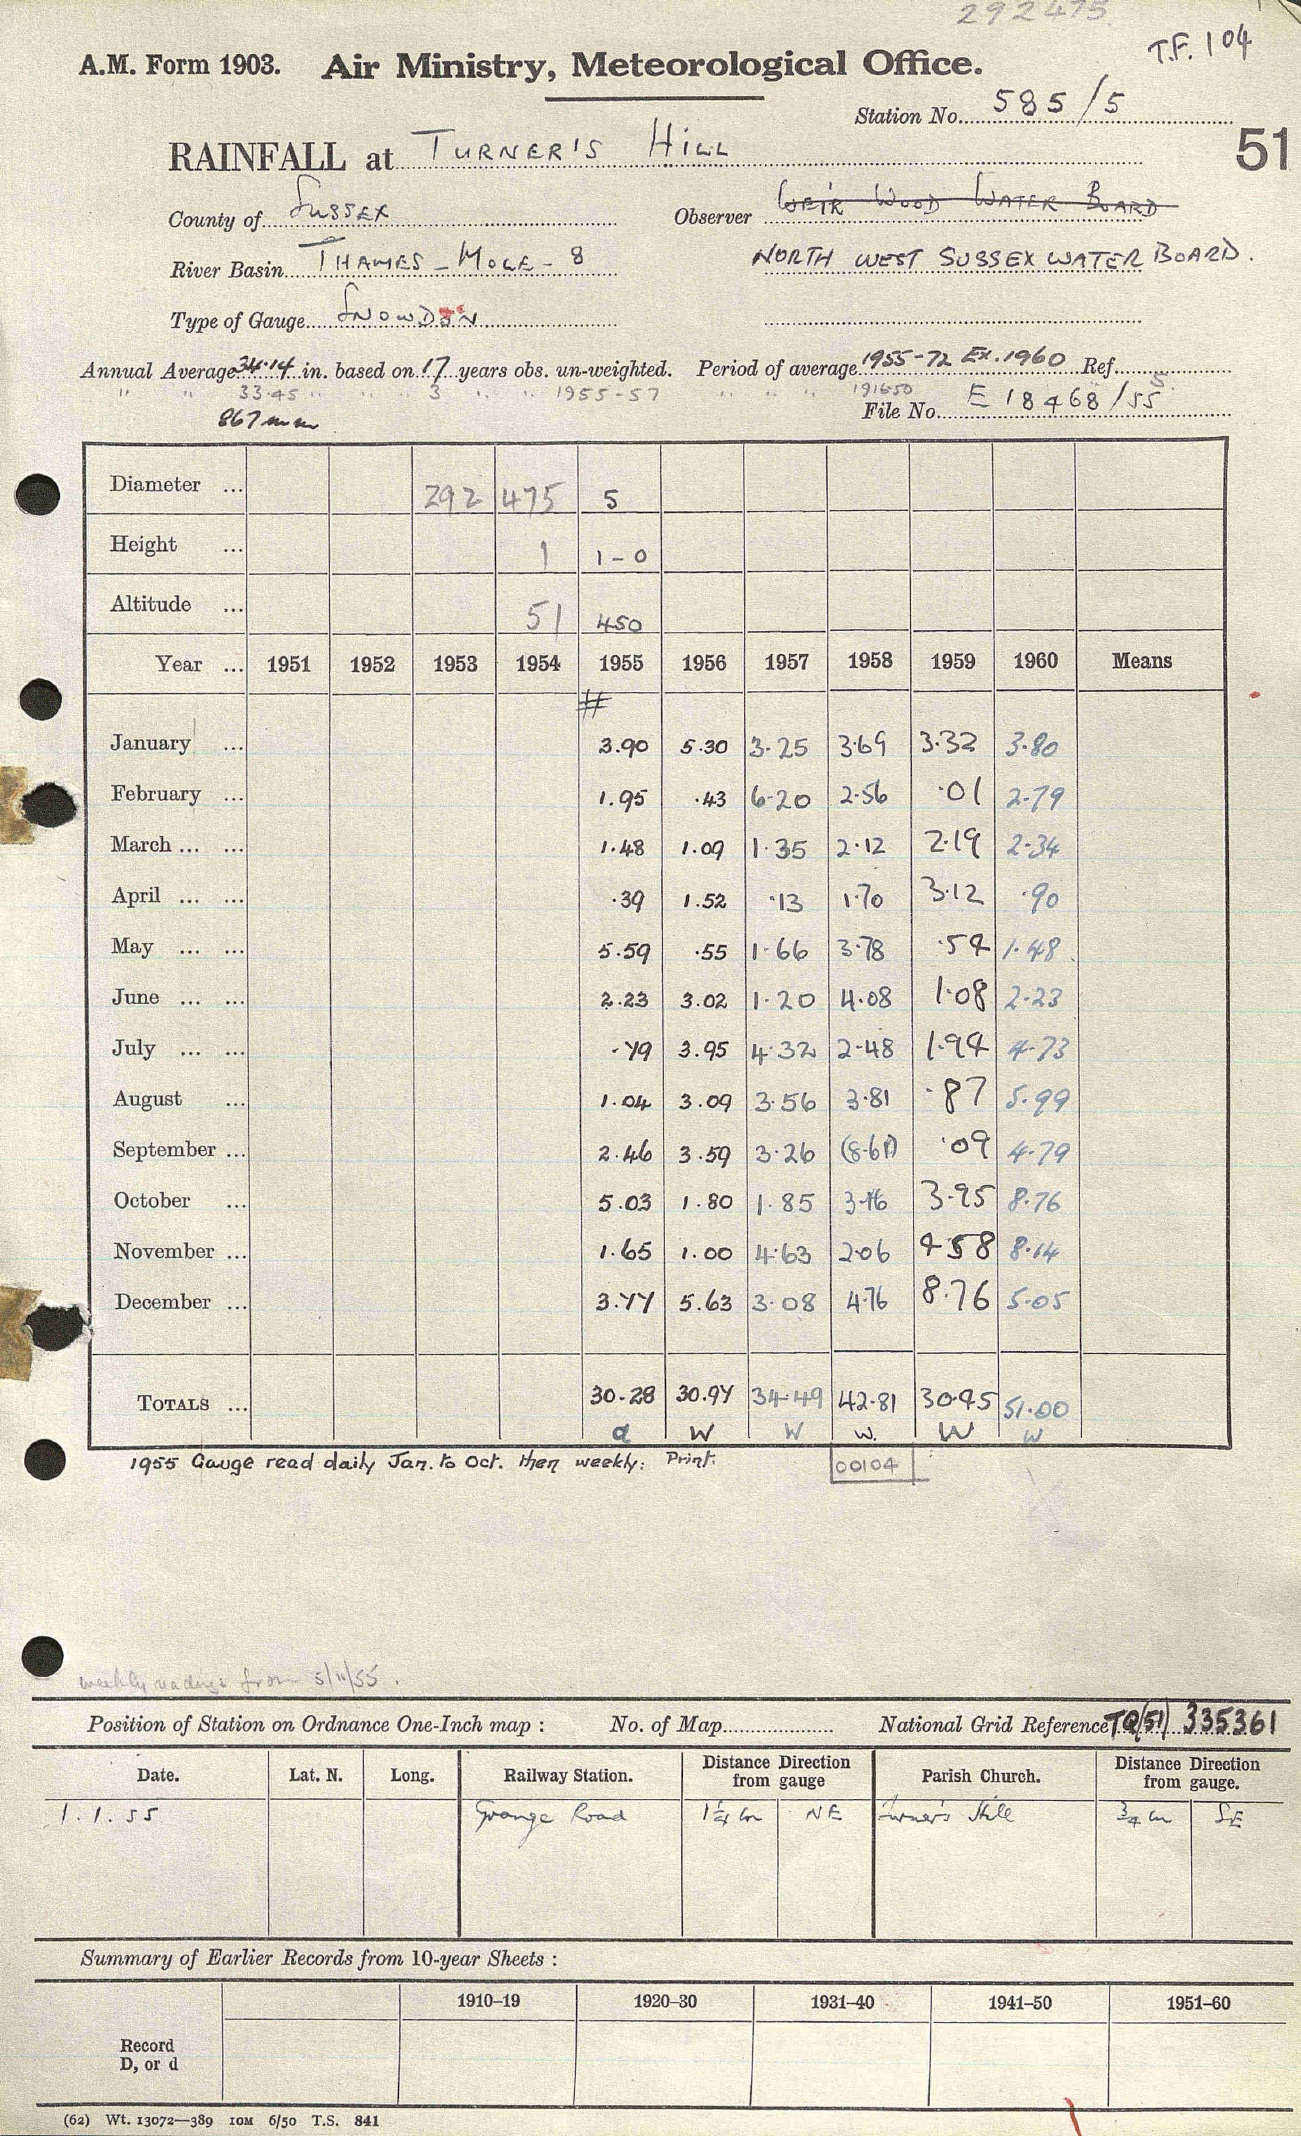 292475
T.F. 104
A.M. Form 1903. Air Ministry, Meteorological Office.
Station No. 585/5
51
RAINFALL at TURNER'S HILL
County of SUSSEX Observer WEIR WOOD WATER BOARD
River Basin THAMES - MOLE - 8 NORTH WEST SUSSEX WATER BOARD.
Type of Gauge SNOWDON
Annual Average 34.14 in. based on 17 years obs. un-weighted. Period of average 1955-72 Ex. 1960 Ref.
" " 33.45 " " 3 " " 1955-57 " " " 1916-50
867 mm File No. E 18468/55
Diameter ... 292 475 5
Height ... 1 1-0
Altitude ... 51 450
Year ... 1951 1952 1953 1954 1955 1956 1957 1958 1959 1960 Means
#
January ... 3.90 5.30 3.25 3.69 3.32 3.80
February ... 1.95 .43 6.20 2.56 .01 2.79
March ... ... 1.48 1.09 1.35 2.12 2.19 2.34
April ... ... .39 1.52 .13 1.70 3.12 .90
May ... ... 5.59 .55 1.66 3.78 .54 1.48
June ... ... 2.23 3.02 1.20 4.08 1.08 2.23
July ... ... .79 3.95 4.32 2.48 1.94 4.73
August ... 1.04 3.09 3.56 3.81 .87 5.99
September ... 2.46 3.59 3.26 (8.61) .09 4.79
October ... 5.03 1.80 1.85 3.16 3.95 8.76
November ... 1.65 1.00 4.63 2.06 4.58 8.14
December ... 3.77 5.63 3.08 4.76 8.76 5.05
TOTALS ... 30.28 30.97 34.49 42.81 30.45 51.00
d W W W. W W
1955 Gauge read daily Jan. to Oct. then weekly: Print.
00104
weekly readings from 5/11/55.
Position of Station on Ordnance One-Inch map : No. of Map National Grid Reference TQ(51) 335361
Date. Lat. N. Long. Railway Station. Distance Direction from gauge Parish Church. Distance Direction from gauge.
1.1.55 Grange Road 1¼ m NE Turner's Hill ¾ m SE
Summary of Earlier Records from 10-year Sheets :
1910–19 1920–30 1931–40 1941–50 1951–60
Record
D, or d
(62) Wt. 13072—389 10M 6/50 T.S. 841